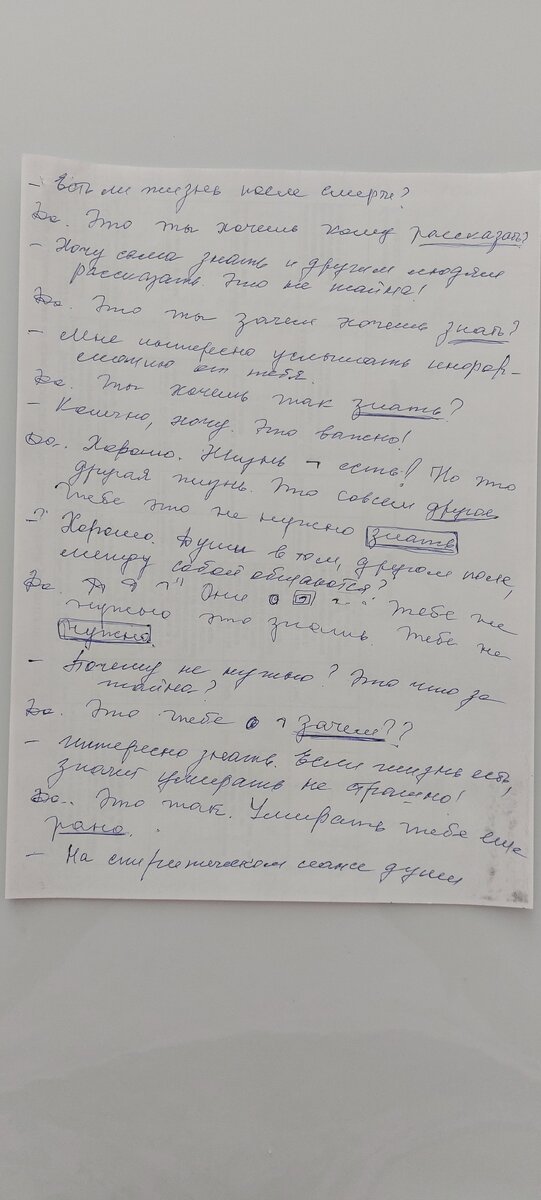 - Есть ли жизнь после смерти?
До. Это ты хочешь кому рассказать?
- Хочу сама знать и другим людям
рассказать. Это не тайна!
До. Это ты зачем хочешь знать?
- Мне интересно услышать инфор-
мацию от тебя.
До. Ты хочешь так знать?
- Конечно, хочу. Это важно!
До.. Хорошо. Жизнь - есть! Но это
другая жизнь. Это совсем другое
Тебе это не нужно знать
- Хорошо. Души в том, другом поле,
между собой общаются?
До. Они тебе не
нужно это знать. Тебе не
нужно.
- Почему не нужно? Это что за
тайна?
До. Это тебе зачем??
- Интересно знать. Если жизнь есть,
значит умирать не страшно!
До.. Это так. Умирать тебе еще
рано..
- На спиритическом сеансе души